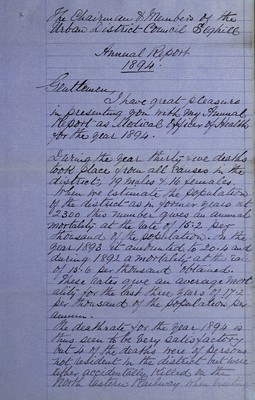 The Chairman & Members of the
Urban District Council Seghill
Annual Report
1894.
Gentlemen,
I have great pleasure
in presenting you with my Annual
Report as Medical Officer of Health
for the year 1894.
During the year thirty five deaths
took place from all causes in the
district, 19 males & 16 females.
When we estimate the population
of the district as in former years at
2300 this number gives an annual
mortality at the rate of 15.2 per
thousand of the population. In the
year 1893 it amounted to
during 1892 a mortality at the rate
of 15.6 per thousand obtained.
These rates give an average mort
ality for the last three years of 17.2
per thousand of the population per
annum.
The deathrate for the year 1894 is
thus seen to be very satisfactory
but 4 of the deaths were of persons
not resident in the district but were
either accidentally killed on the
North Eastern Railway when